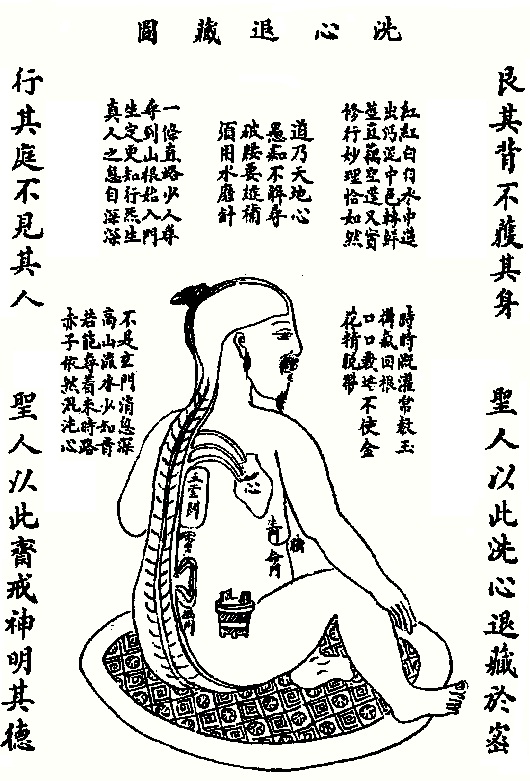 洗心退藏圖
艮其背不獲其身
聖人以此洗心退藏於密
紅紅白白水中蓮
出污泥中色轉鮮
莖直藕空蓮又實
修行妙理恰如然
道乃天地心
愚痴不解尋
破 要 補
須用水磨針
一條直路少人尋
尋到山根始入門
更知行炁主
真人之息自深深
時時漑灌常教玉
氣回根
不使金
花精脫蒂
不是玄門消息深
高山流水少知音
若能尋着來時路
赤子依然混沌心
心
行其庭不見其人
聖人以此齋戒神明其德